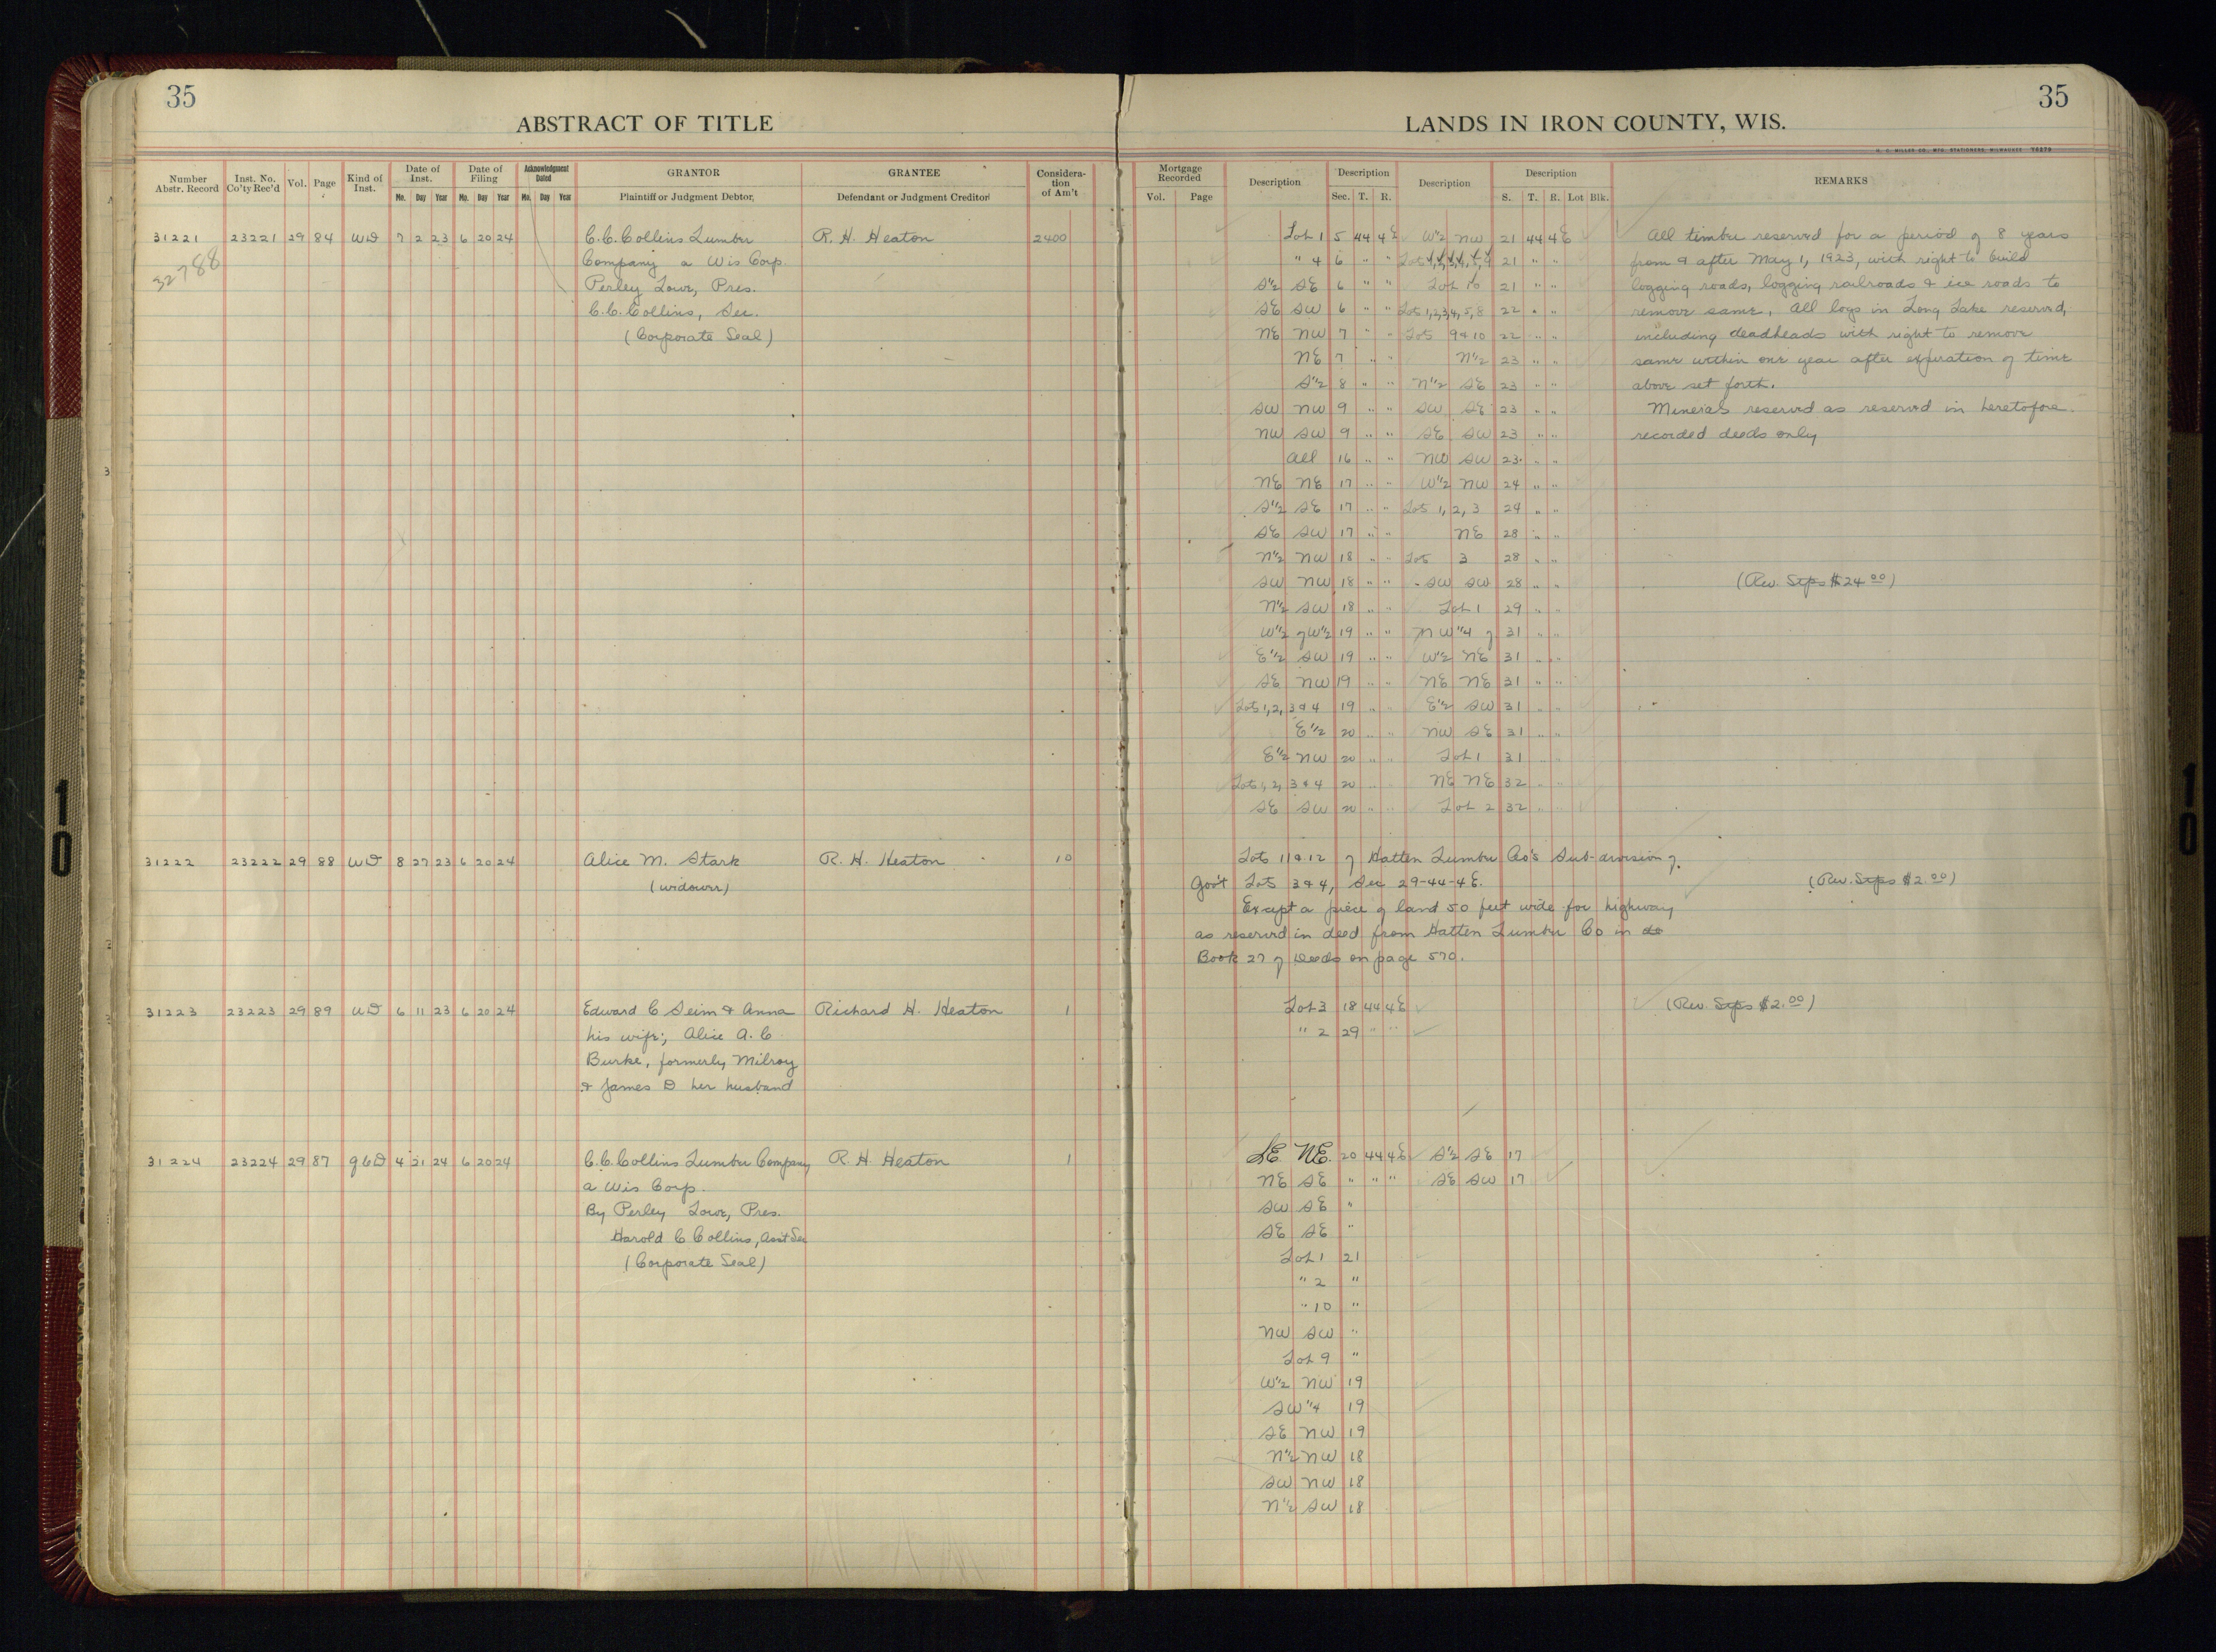 35
35
ABSTRACT OF TITLE
LANDS IN IRON COUNTY, WIS.
Number Abstr. Record | Inst. No. Co'ty Rec'd | Vol. | Page | Kind of Inst. | Date of Inst. Mo. Day Year | Date of Filing Mo. Day Year | Acknowledgment Dated Mo. Day Year | GRANTOR Plaintiff or Judgment Debtor, | GRANTEE Defendant or Judgment Creditor | Consideration of Am't
Mortgage Recorded Vol. Page | Description | Description Sec. T. R. | Description | Description S. T. R. Lot Blk. | REMARKS
31221 23221 29 84 WD 7 2 23 6 20 24 C.C. Collins Lumber R. H. Heaton 2400
32788 Company a Wis Corp.
Perley Lowe, Pres.
C.C. Collins, Sec.
(Corporate Seal)
Lot 1 5 44 4E W"2 NW 21 44 4E All timber reserved for a period of 8 years
" 4 6 " " Lots 21 " " from & after May 1, 1923, with right to build
S"2 SE 6 " " Lot 10 21 " " logging roads, logging railroads & ice roads to
SE SW 6 " " Lots 1,2,3,4,5,8 22 " " remove same. All logs in Long Lake reserved,
NE NW 7 " " Lots 9 & 10 22 " " including deadheads with right to remove
NE 7 " " N"2 23 " " same within one year after expiration of time
S"2 8 " " N"2 SE 23 " " above set forth.
SW NW 9 " " SW SE 23 " " Minerals reserved as reserved in heretofore
NW SW 9 " " SE SW 23 " " recorded deeds only
All 16 " " NW SW 23 " "
NE NE 17 " " W"2 NW 24 " "
S"2 SE 17 " " Lots 1, 2, 3 24 " "
SE SW 17 " " NE 28 " "
N"2 NW 18 " " Lots 3 28 " "
SW NW 18 " " SW SW 28 " " (Rev. Stps $24 00)
N"2 SW 18 " " Lot 1 29 " "
W"2 of W"2 19 " " NW"4 of 31 " "
E"2 SW 19 " " W"2 NE 31 " "
SE NW 19 " " NE NE 31 " "
Lots 1, 2, 3 & 4 19 " " E"2 SW 31 " "
E"2 20 " " NW SE 31 " "
E"2 NW 20 " " Lot 1 31 " "
Lots 1, 2, 3 & 4 20 " " NE NE 32 " "
SE SW 20 " " Lot 2 32 " "
31222 23222 29 88 WD 8 27 23 6 20 24 Alice M. Stark R. H. Heaton 10
(widower)
Lots 11 & 12 of Hatten Lumber Co's Sub-division of
Gov't Lots 3 & 4, Sec 29-44-4E. (Rev. Stps $2.00)
Except a piece of land 50 feet wide for highway
as reserved in deed from Hatten Lumber Co in
Book 27 of Deeds on page 570.
31223 23223 29 89 WD 6 11 23 6 20 24 Edward C Seim & Anna Richard H. Heaton 1
his wife; Alice A. C
Burke, formerly Milroy
& James D her husband
Lot 3 18 44 4E (Rev. Stps $2.00)
" 2 29 " "
31224 23224 29 87 QCD 4 21 24 6 20 24 C.C. Collins Lumber Company R. H. Heaton 1
a Wis Corp.
By Perley Lowe, Pres.
Harold C Collins, Asst Sec
(Corporate Seal)
SE NE. 20 44 4E S"2 SE 17
NE SE " " " SE SW 17
SW SE "
SE SE "
Lot 1 21
" 2 "
" 10 "
NW SW "
Lot 9 "
W"2 NW 19
SW"4 19
SE NW 19
N"2 NW 18
SW NW 18
N"2 SW 18
10
10